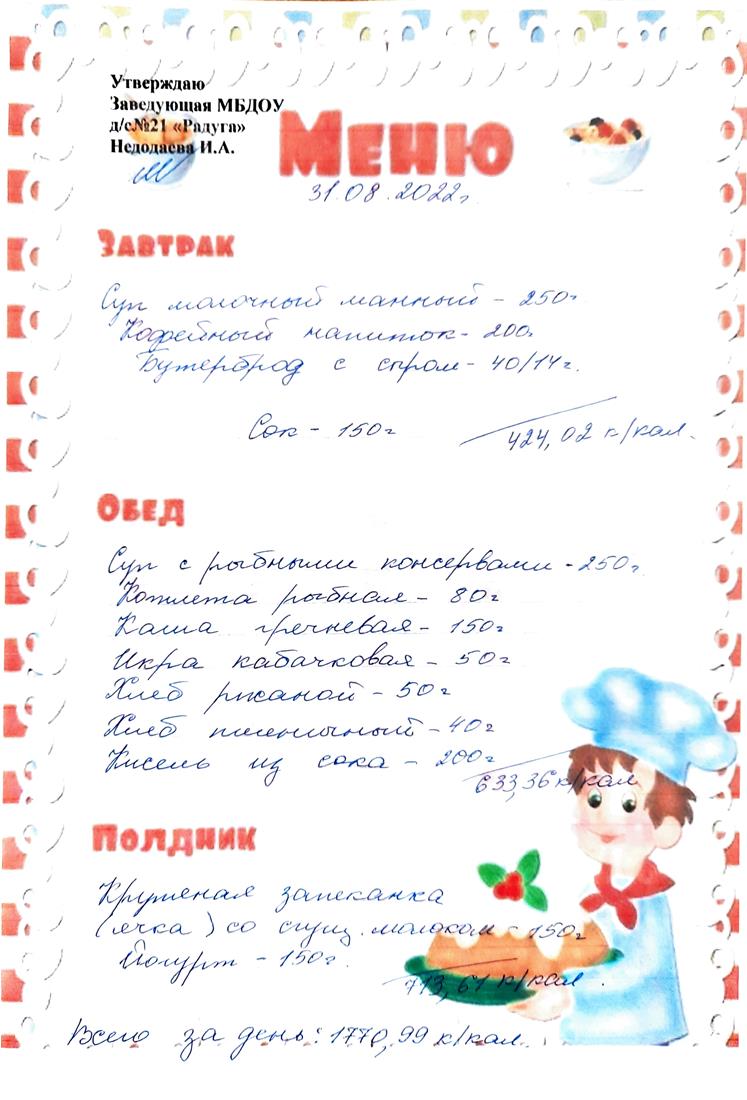 Утверждаю
Заведующая МБДОУ
д/с№21 «Радуга»
Недодаева И.А.
Меню
31.08.2022г.
Завтрак
Суп молочный манный - 250г
Кофейный напиток - 200г
Бутерброд с сыром - 40/14г.
Сок - 150г
424,02 к/кал.
Обед
Суп с рыбными консервами - 250г.
Котлета рыбная - 80г
Каша гречневая - 150г
Икра кабачковая - 50г
Хлеб ржаной - 50г
Хлеб пшеничный - 40г
Кисель из сока - 200г
633,36 к/кал
Полдник
Крупеная запеканка
(ячка) со сгущ. молоком - 150г
Йогурт - 150г.
713,61 к/кал.
Всего за день: 1770,99 к/кал.